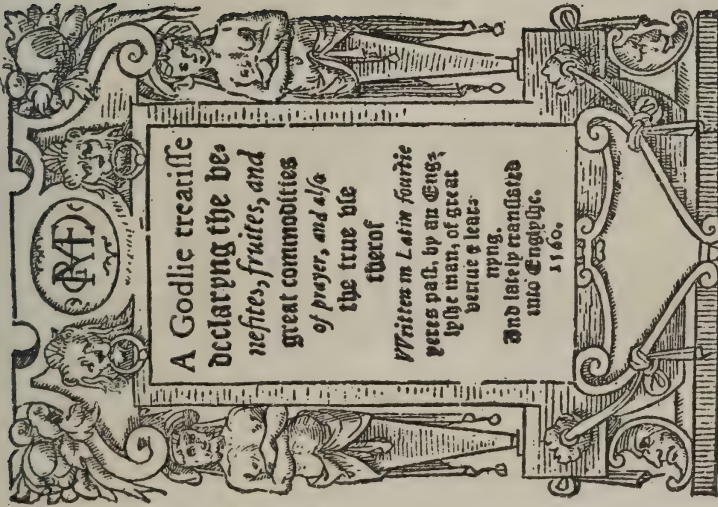 A Godlie treatisse
declaryng the be-
nefites, fruites, and
great commodities
of prayer, and also
the true vse
therof
Written in Latin fourtie
yeres past, by an Eng-
lyshe man, of great
vertue & lear-
nyng.
And lately translated
into Englyshe.
1560.